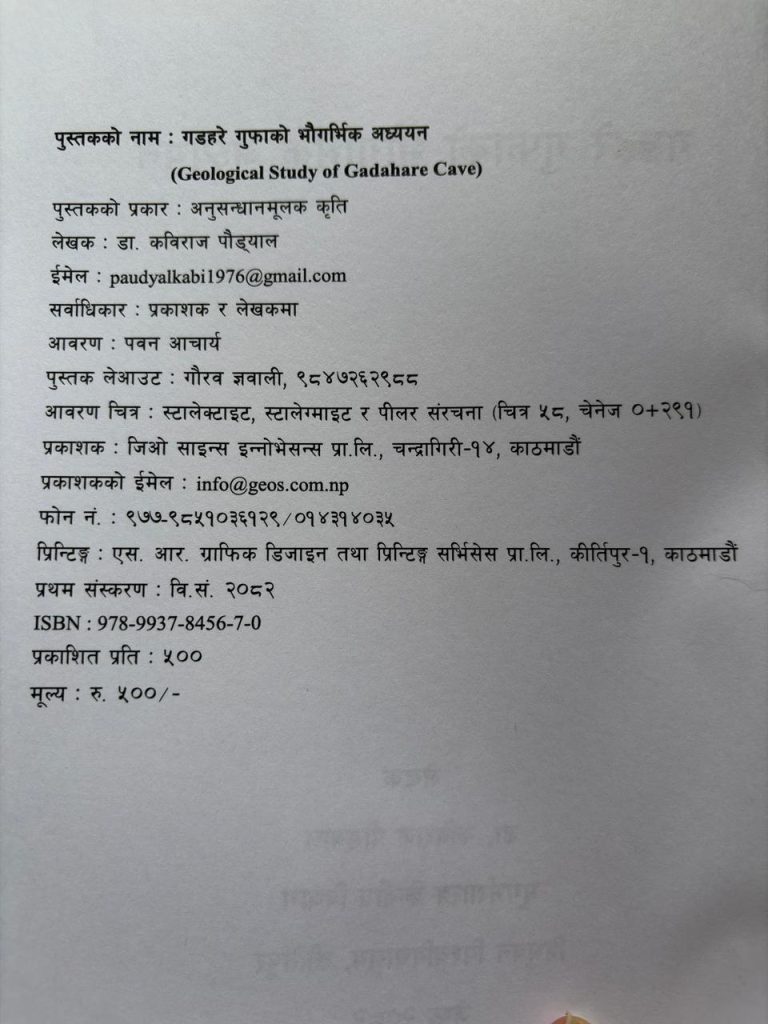 पुस्तकको नाम : गडहरे गुफाको भौगर्भिक अध्ययन
(Geological Study of Gadahare Cave)
पुस्तकको प्रकार : अनुसन्धानमूलक कृति
लेखक : डा. कविराज पौड्याल
ईमेल : paudyalkabi1976@gmail.com
सर्वाधिकार : प्रकाशक र लेखकमा
आवरण : पवन आचार्य
पुस्तक लेआउट : गौरव ज्ञवाली, ९८४७२६२९८८
आवरण चित्र : स्टालेक्टाइट, स्टालेग्माइट र पीलर संरचना (चित्र ५८, चेनेज ०+२९१)
प्रकाशक : जिओ साइन्स इन्नोभेसन्स प्रा.लि., चन्द्रागिरी-१४, काठमाडौं
प्रकाशकको ईमेल : info@geos.com.np
फोन नं. : ९७७-९८५१०३६१२९/०१४३१४०३५
प्रिन्टिङ्ग : एस. आर. ग्राफिक डिजाइन तथा प्रिन्टिङ्ग सर्भिसेस प्रा.लि., कीर्तिपुर-१, काठमाडौं
प्रथम संस्करण : वि.सं. २०८२
ISBN : 978-9937-8456-7-0
प्रकाशित प्रति : ५००
मूल्य : रु. ५००/-